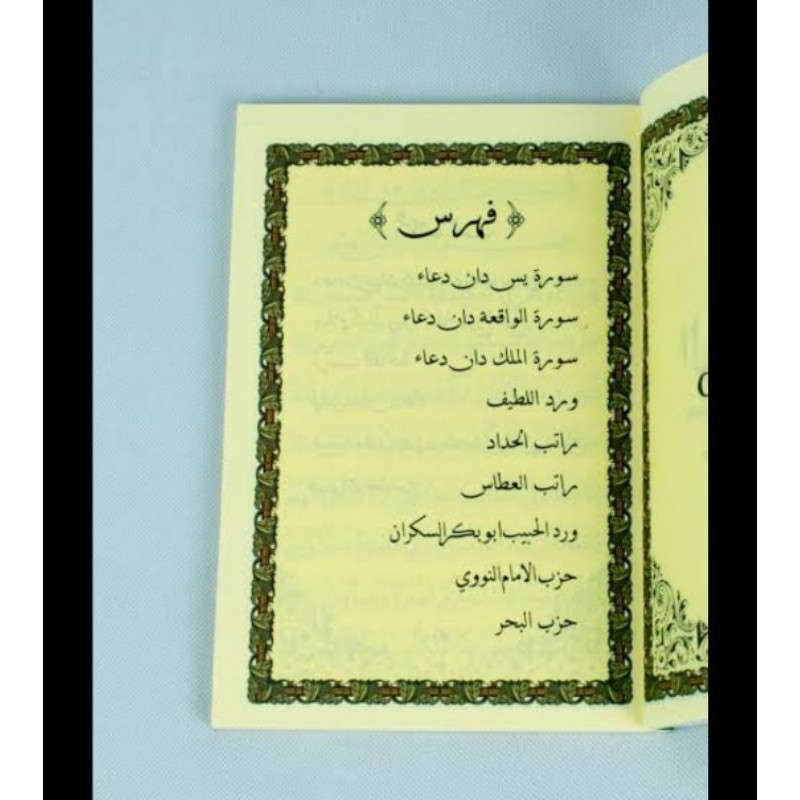 ﴿ فهرس ﴾
سورة يس دان دعاء
سورة الواقعة دان دعاء
سورة الملك دان دعاء
ورد اللطيف
راتب الحداد
راتب العطاس
ورد الحبيب ابو بكر السكران
حزب الامام النووي
حزب البحر